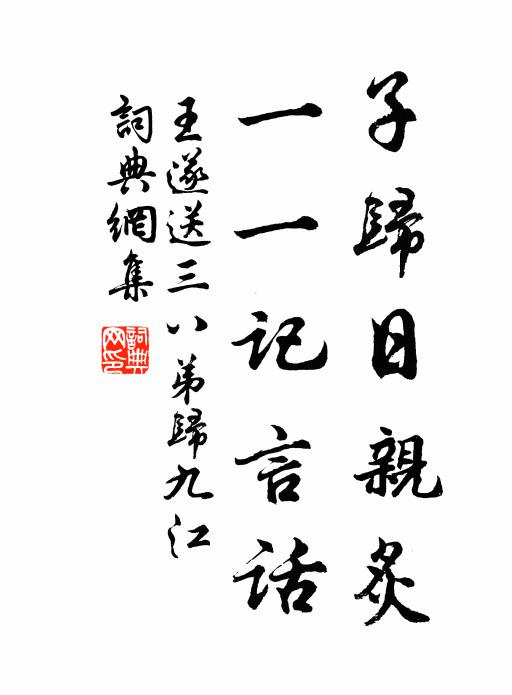 子歸日親炙
一一記言話
王遂送三八弟歸九江
詞典網集
詞典网印